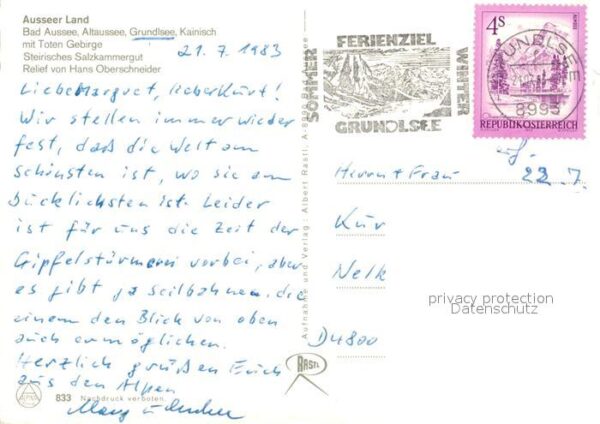 Ausseer Land
Bad Aussee, Altaussee, Grundlsee, Kainisch
mit Toten Gebirge
Steirisches Salzkammergut
Relief von Hans Oberschneider
21. 7. 1983
Liebe Margret, lieber Kurt!
Wir stellen immer wieder
fest, daß die Welt am
schönsten ist, wo sie am
bücklichsten ist. Leider
ist für uns die Zeit der
Gipfelstürmerei vorbei, aber
es gibt ja Seilbahnen, die
einem den Blick von oben
auch ermöglichen.
Herzlich grüßen Euch
aus den Alpen
833 Nachdruck verboten
Aufnahme und Verlag: Albert Rastl, A-8990 Bad Aussee
RASTL
SOMMER
FERIENZIEL
WINTER
GRUNDLSEE
4S
REPUBLIK ÖSTERREICH
GRUNDLSEE
8993
22. 7.
Herrn + Frau
Kur
Nelk
D4800
privacy protection
Datenschutz